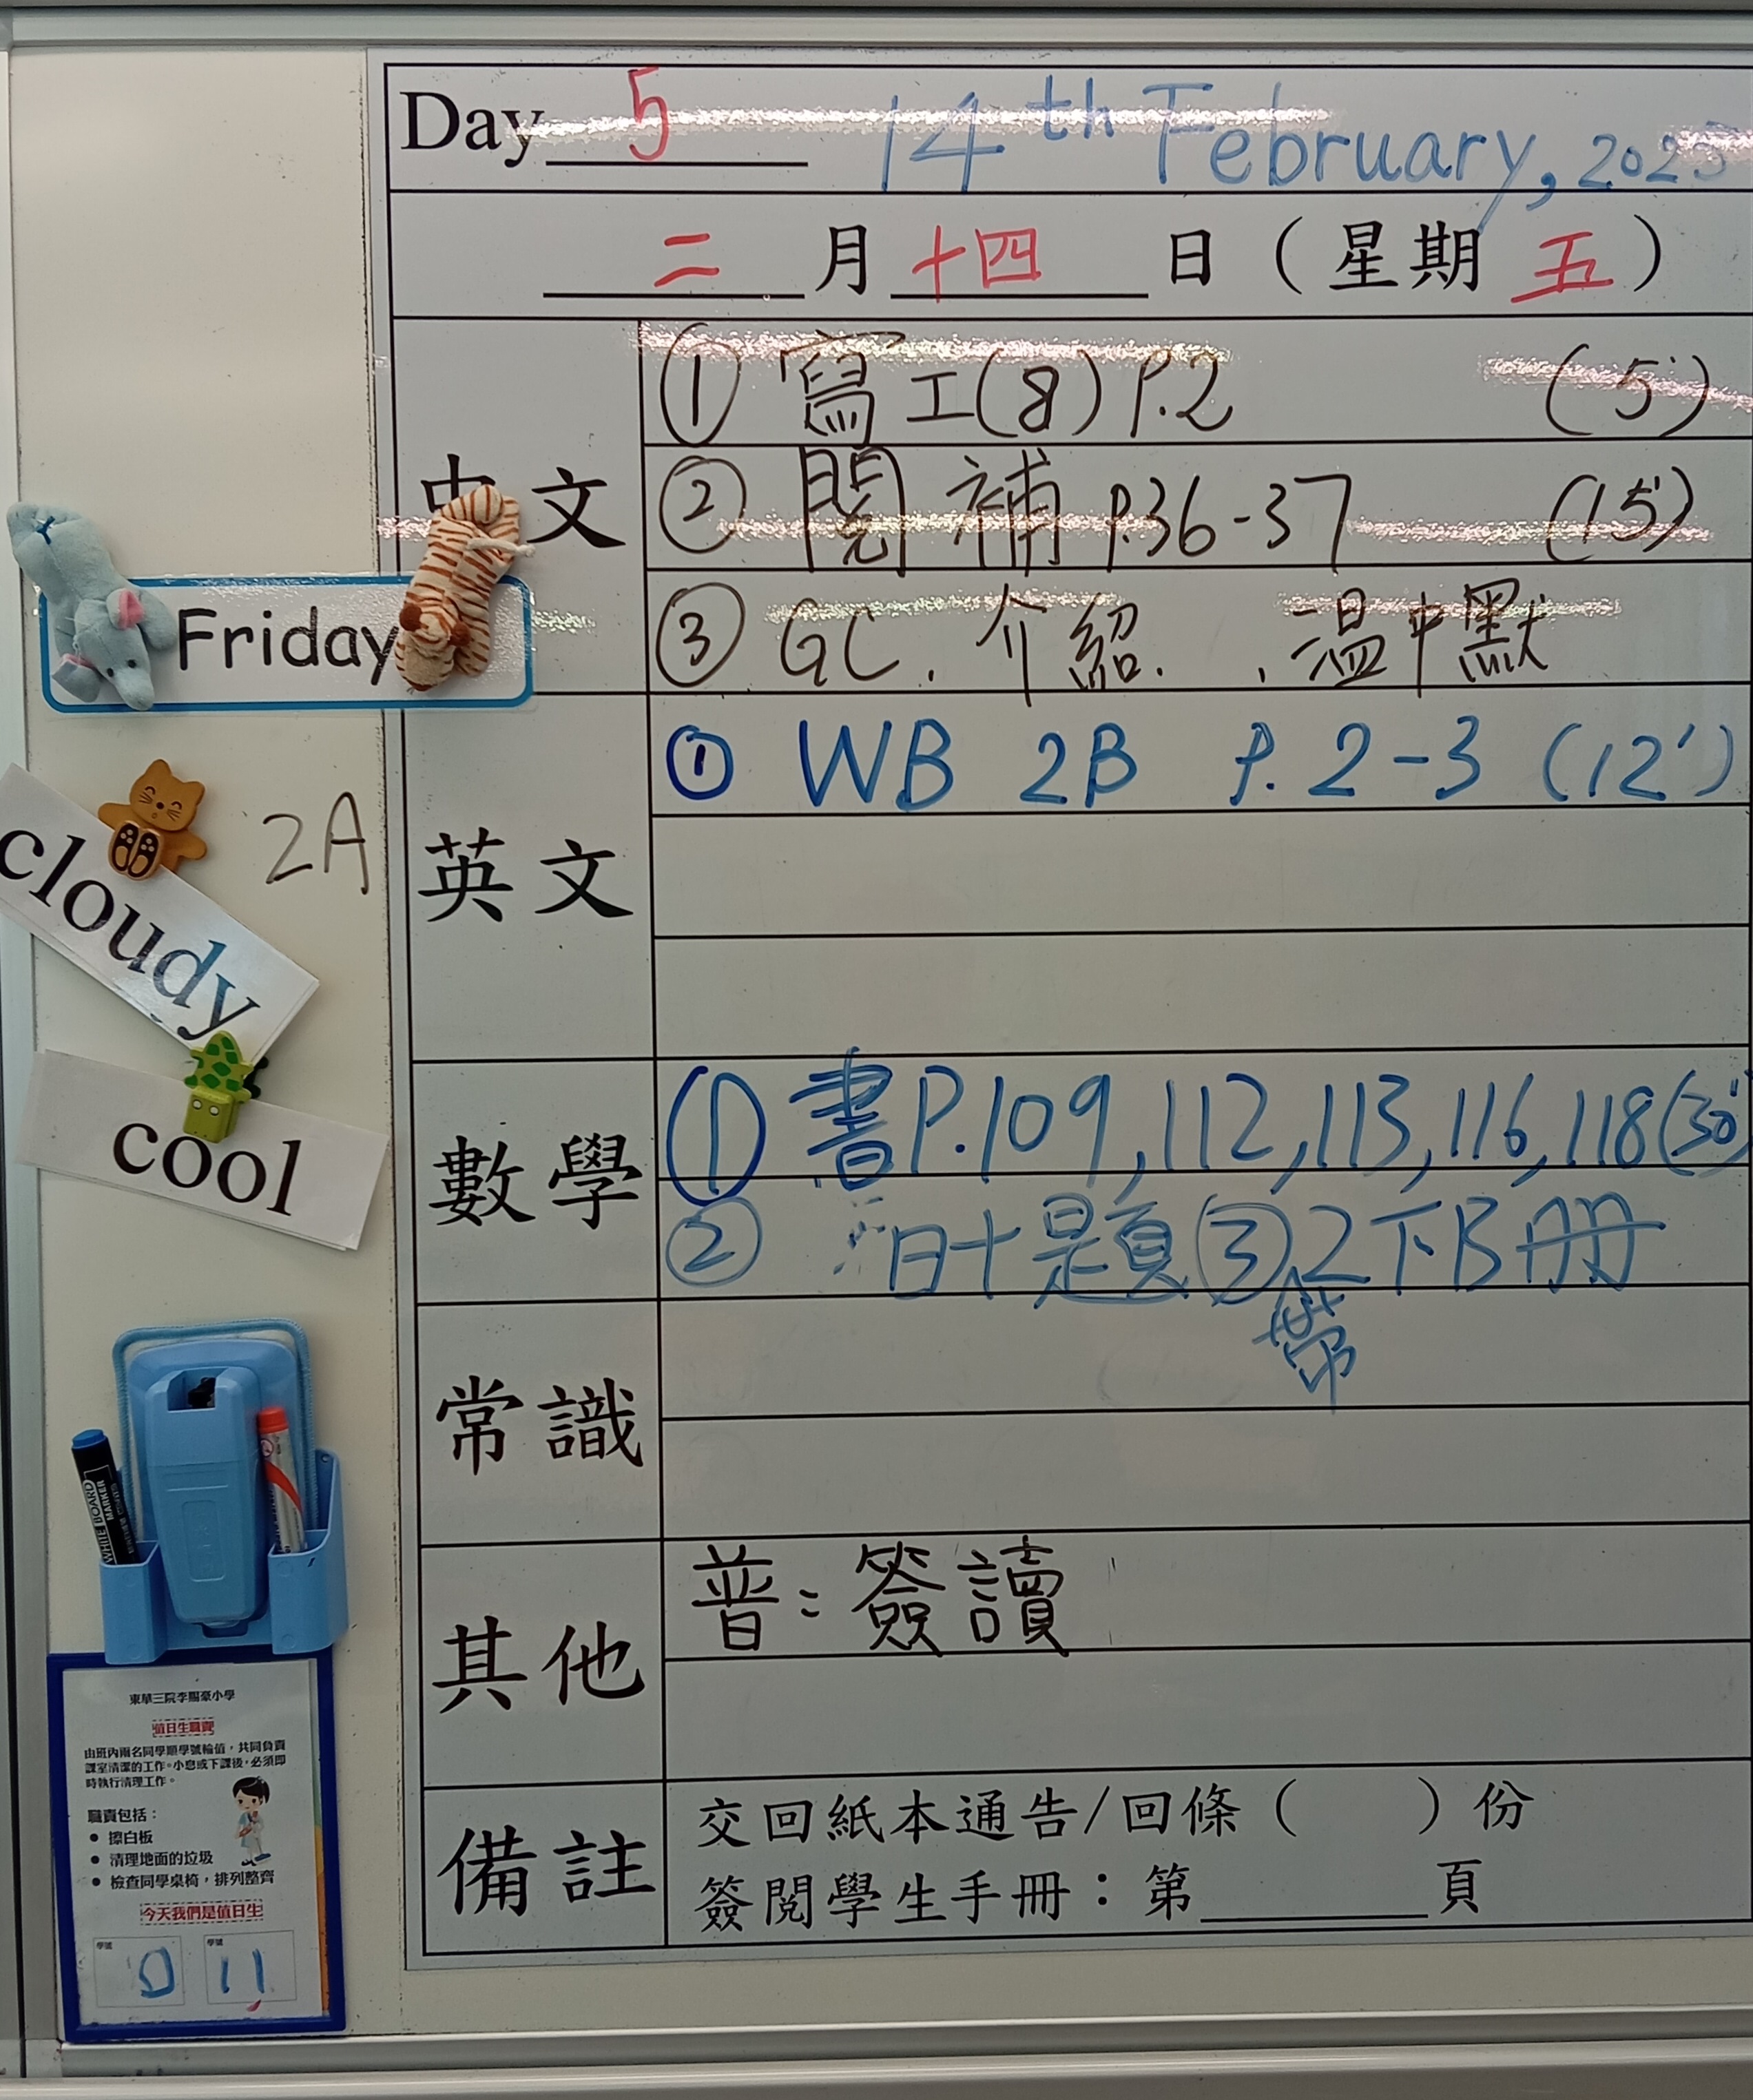 Day 5 14th February, 2025
二 月 十四 日 (星期 五)
中文
① 寫工(8) P.2 (5')
② 閱補 P.36-37 (15')
③ GC. 介紹. . 溫中默
Friday
英文
① WB 2B P. 2-3 (12')
2A
cloudy
cool
數學
① 書P.109, 112, 113, 116, 118 (30')
② 十題 ③ 2下B冊
帶
常識
其他
普: 簽讀
備註
交回紙本通告/回條 ( ) 份
簽閱學生手冊：第 頁
WHITE BOARD
MARKER
東華三院李賜豪小學
值日生職責
由班內兩名同學順學號輪值，共同負責
課室清潔的工作。小息或下課後，必須即
時執行清理工作。
職責包括：
● 擦白板
● 清理地面的垃圾
● 檢查同學桌椅，排列整齊
今天我們是值日生
學號 學號
11